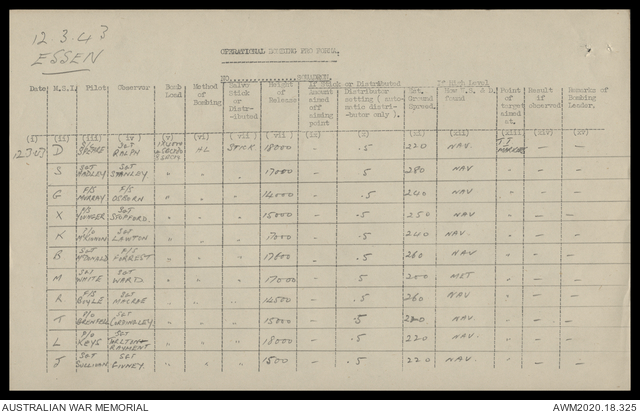 12.3.43
ESSEN
OPERATIONAL BOMBING PRO FORMA.
NO. SQUADRON.
Date M.S.I. Pilot Observer Bomb Load Method of Bombing Salvo Stick or Distr-ibuted Height of Release If Stick or Distributed Amount aimed off aiming point Distributor setting ( auto-matic distri-butor only ). Est. Ground Speed. If High Level How W.S. & D. found Point of target aimed at. Result if observed Remarks of Bombing Leader.
(i) (ii) (iii) (iv) (v) (vi) (vii) (viii) (ix) (x) (xi) (xii) (xiii) (xiv) (xv)
D SGT RALPH HL STICK 18000 - .5 220 NAV. T.I MARKERS - -
S SGT HADLEY SGT STANLEY " " " 17000 - .5 280 NAV " - -
G F/S MURRAY F/S OSBORN " " " 14000 - .5 240 NAV " - -
X F/S SGT STOPFORD. " " " 15000 - .5 250 NAV " - -
K SGT LAWTON " " " - .5 240 NAV. " - -
B SGT McDONALD F/S FORREST " " " - .5 260 NAV " - -
M SGT WHITE SGT WARD " " " 17000 - 5 200 MET " - -
R F/S BOYLE SGT MACRAE " " " 14500 - .5 260 NAV " - -
T P/O GRENFELL SGT " " " 15000 - 5 NAV. " - -
L P/O KEYS SGT RAYMENT " " " 18000 - .5 220 NAV. " - -
J SGT SULLIVAN SGT " " " 1500 - .5 220 NAV. " - -
AUSTRALIAN WAR MEMORIAL
AWM2020.18.325